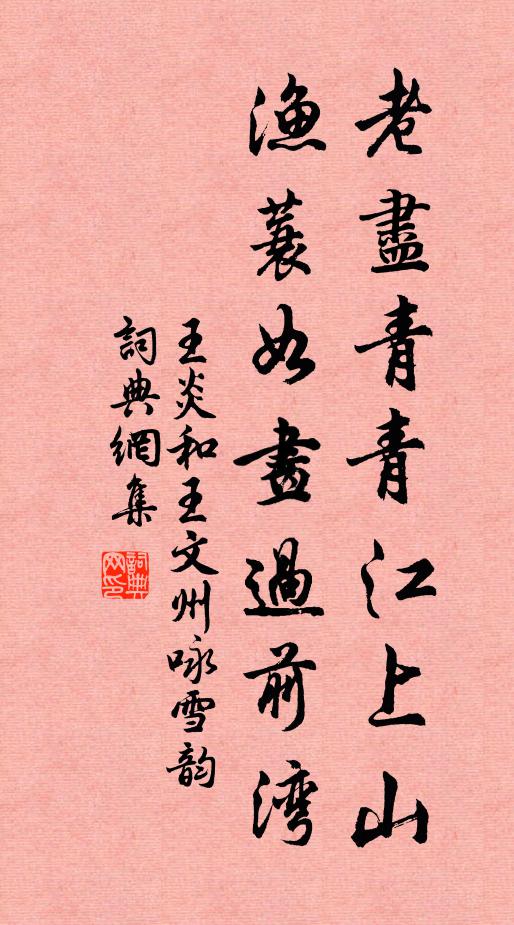 老盡青青江上山
漁蓑如畫過前湾
王炎和王文州咏雪韵
詞典網集
詞典網印